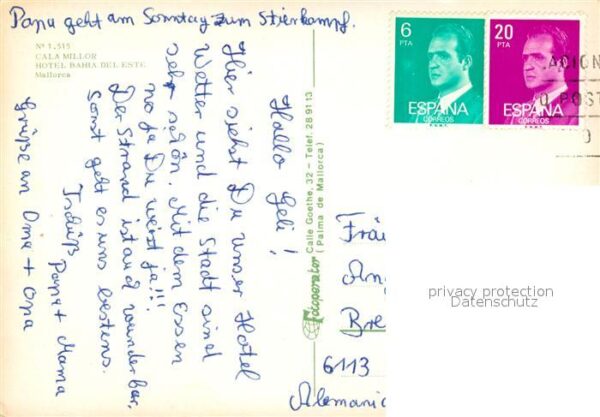 Papa geht am Sonntag zum Stierkampf.
Nº 1.515
CALA MILLOR
HOTEL BAHIA DEL ESTE
Mallorca
Hallo Geli!
Hier siehst Du unser Hotel
Wetter und die Stadt sind
sehr schön. Mit dem Essen
na ja Du weist ja!!!
Der Strand ist auch wunderbar,
sonst geht es uns bestens.
Tschüß Papa + Mama
Grüße an Oma + Opa
Fotoperator
Calle Goethe, 32 – Telef. 28 91 13
(Palma de Mallorca)
6 PTA
ESPAÑA
CORREOS
F.N.M.T.
20 PTA
ESPAÑA
CORREOS
F.N.M.T.
ACION
O POST
Fräu
Ang
Bre
6113
Alemania
privacy protection
Datenschutz